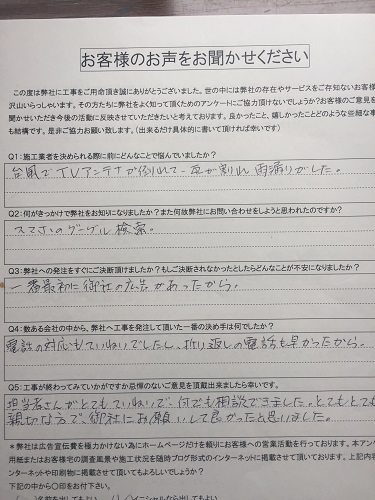 お客様のお声をお聞かせください
この度は弊社に工事をご用命頂き誠にありがとうございました。世の中には弊社の存在やサービスをご存知ないお客様
沢山いらっしゃいます。その方たちに弊社をよく知って頂くためのアンケートにご協力頂けないでしょうか?お客様のご意見を
聞かせいただき今後の活動に反映させていただきたいと考えております。良かったこと、嬉しかったことどのような些細な事
も結構です。是非ご協力お願い致します。(出来るだけ具体的に書いて頂ければ幸いです)
Q1:施工業者を決められる際に前にどんなことで悩んでいましたか?
台風でTVアンテナが倒れて、瓦が割れ雨漏りがした。
Q2:何がきっかけで弊社をお知りになりましたか?また何故弊社にお問い合わせをしようと思われたのですか?
スマホのグーグル検索。
Q3:弊社への発注をすぐにご決断頂けましたか?もしご決断されなかったとしたらどんなことが不安になりましたか?
一番最初に御社の広告があったから。
Q4:数ある会社の中から、弊社へ工事を発注して頂いた一番の決め手は何でしたか?
電話の対応もていねいでしたし、折り返しの電話も早かったから。
Q5:工事が終わってみていかがですか忌憚のないご意見を頂戴出来ましたら幸いです。
担当者さんがとてもていねいで、何でも相談できました。とてもとても
親切な方で、御社にお願いして良かったと思いました。
*弊社は広告宣伝費を極力かけない為にホームページだけを頼りにお客様への営業活動を行っております。本アン
用紙またはお客様宅の調査風景や施工状況を随時ブログ形式のインターネットに掲載させて頂いております。上記内容
ンターネットや印刷物に掲載させて頂いてもよろしいでしょうか?
下記の中から〇印をお付下さい。